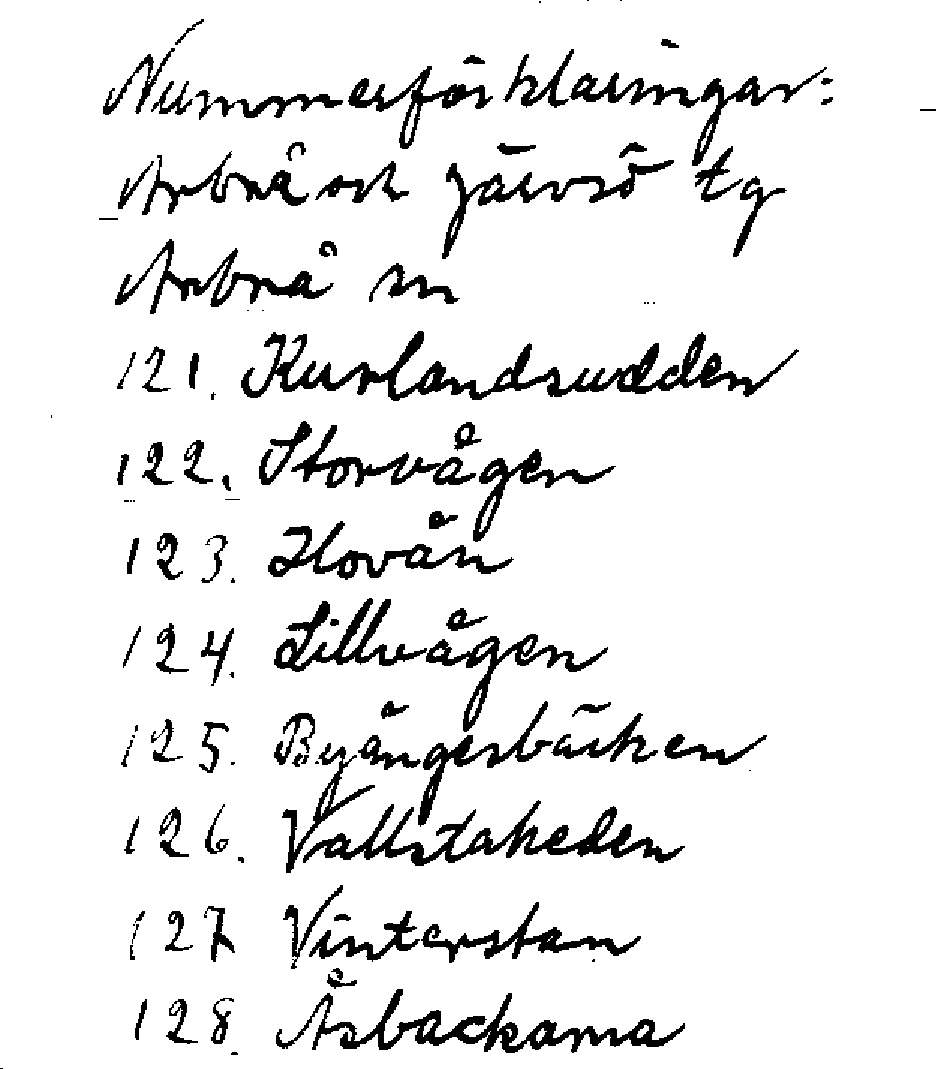 Nummerförklaringar:
Arbrå och Järvsö tg
Arbrå sn
121. Kurlandsudden
122. Storvågen
123. Hovån
124. Lillvågen
125. Byångersbäcken
126. Vallstaheden
127 Vinterstan
128. Åsbackarna